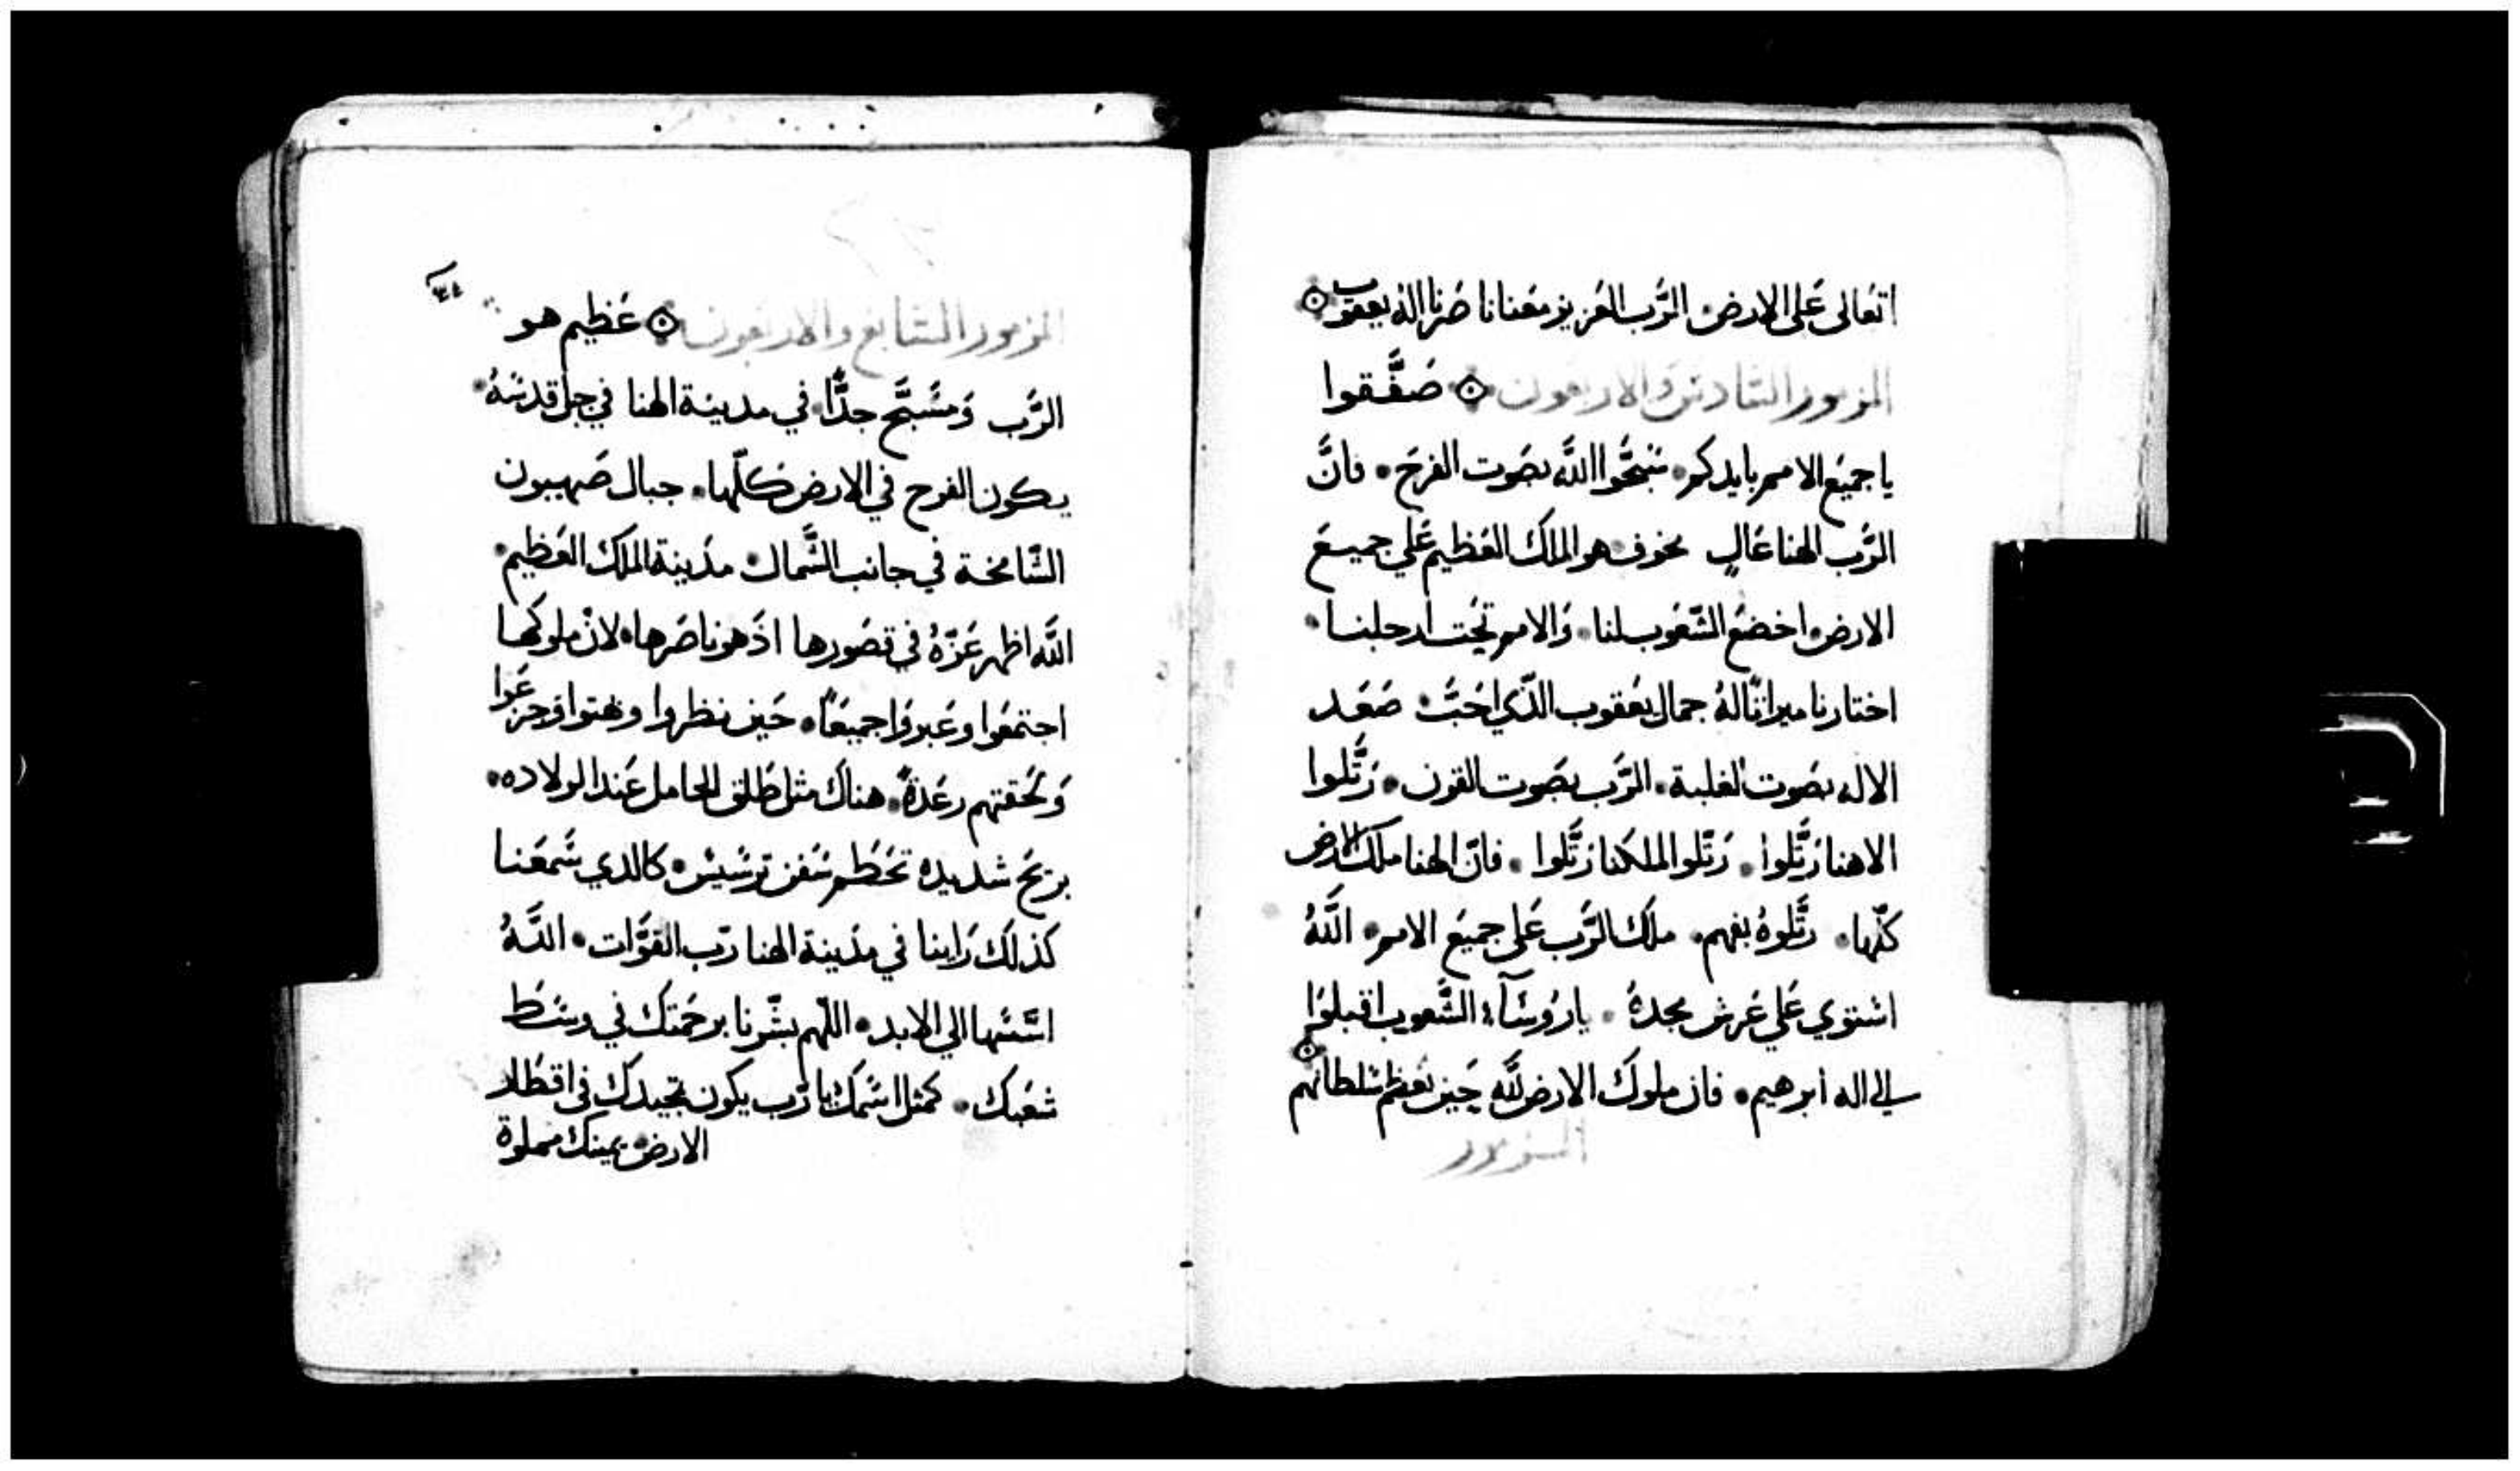 اتعالى على الارض الرَّب العزيز معنا ناصرنا اله يعقوب
المزمور السَّادس والاربعون صَفَّقوا
يا جميع الامم بايديكم سَبِّحُوا اللَّه بصَوت الفرح فانَّ
الرَّب الهنا عَالٍ مخوف هو الملك العَظيم عَلي جميع
الارض اخضع الشّعوب لنا وَالامم تحت ارجلنا
اختارنا ميراثًا لهُ جمال يعقوب الذَّي احَبَّ صَعَد
الاله بصَوت الغلبة الرَّب بصَوت القرن رَتَّلوا
الاهنا رَتَّلوا رَتّلوا لملكنا رَتَّلوا فانّ الهنا ملك الارض
كلّها رتَّلوهُ بفهم ملك الرَّب عَلى جميع الامم اللَّهُ
اسَتوي عَلي عَرش مجدهُ يا روُسَآء الشَّعوب اقبلوا
الي اله ابرهيم فان ملوك الارض للَّه حين تعظم سَلطانهم
المزمور
٤٨
المزمور السَّابع والاربعون عَظيم هو
الرَّب وَمسَبَّح جدًّا في مدينة الهنا في جبل قدسَهُ
يكون الفرح في الارض كلّها جبال صَهيون
الشَّامخة في جانب الشَّمال مدَينة الملك العَظيم
اللَّه اظهر عَزّهُ في قصَورها اذَ هو ناصَرها لانْ ملوكها
اجتمعَوا وعَبروَا جميعًا حَين نظروا وبهتوا وجزعَوا
وَلحَقتهم رعَدةً هناك مثل طَلق الحامل عَند الولاده
بريحَ شديده تحَطم سَفن ترسَيسَ كالدي سَمعَنا
كذلك رَاينا في مدَينة الهنا ربّ القوَّات اللَّهُ
اسَّسَها الي الابد اللّهم بشَّرنا برحَمتك في وسَط
شعَبك كمثل اسَمك يا رَّب يكون تمجيدك في اقطار
الارض يمينك مملوة